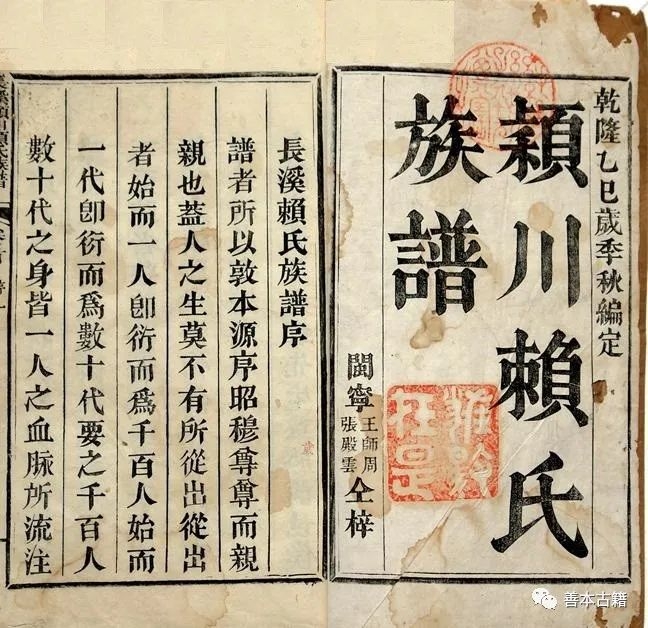 乾隆乙巳歲季秋編定
穎川賴氏
族譜
閩寧王師周
張殿雲仝梓
長溪賴氏族譜序
譜者所以敦本源序昭穆尊尊而親
親也蓋人之生莫不有所從出從出
者始而一人卽衍而爲千百人始而
一代卽衍而爲數十代要之千百人
數十代之身皆一人之血脉所流注
善本古籍